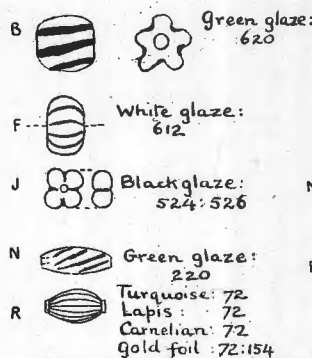 B
Green glaze:
620
F
White glaze:
612
J
Black glaze:
524:526
N
Green glaze:
220
R
Turquoise: 72
Lapis : 72
Carnelian: 72
gold foil :72:154